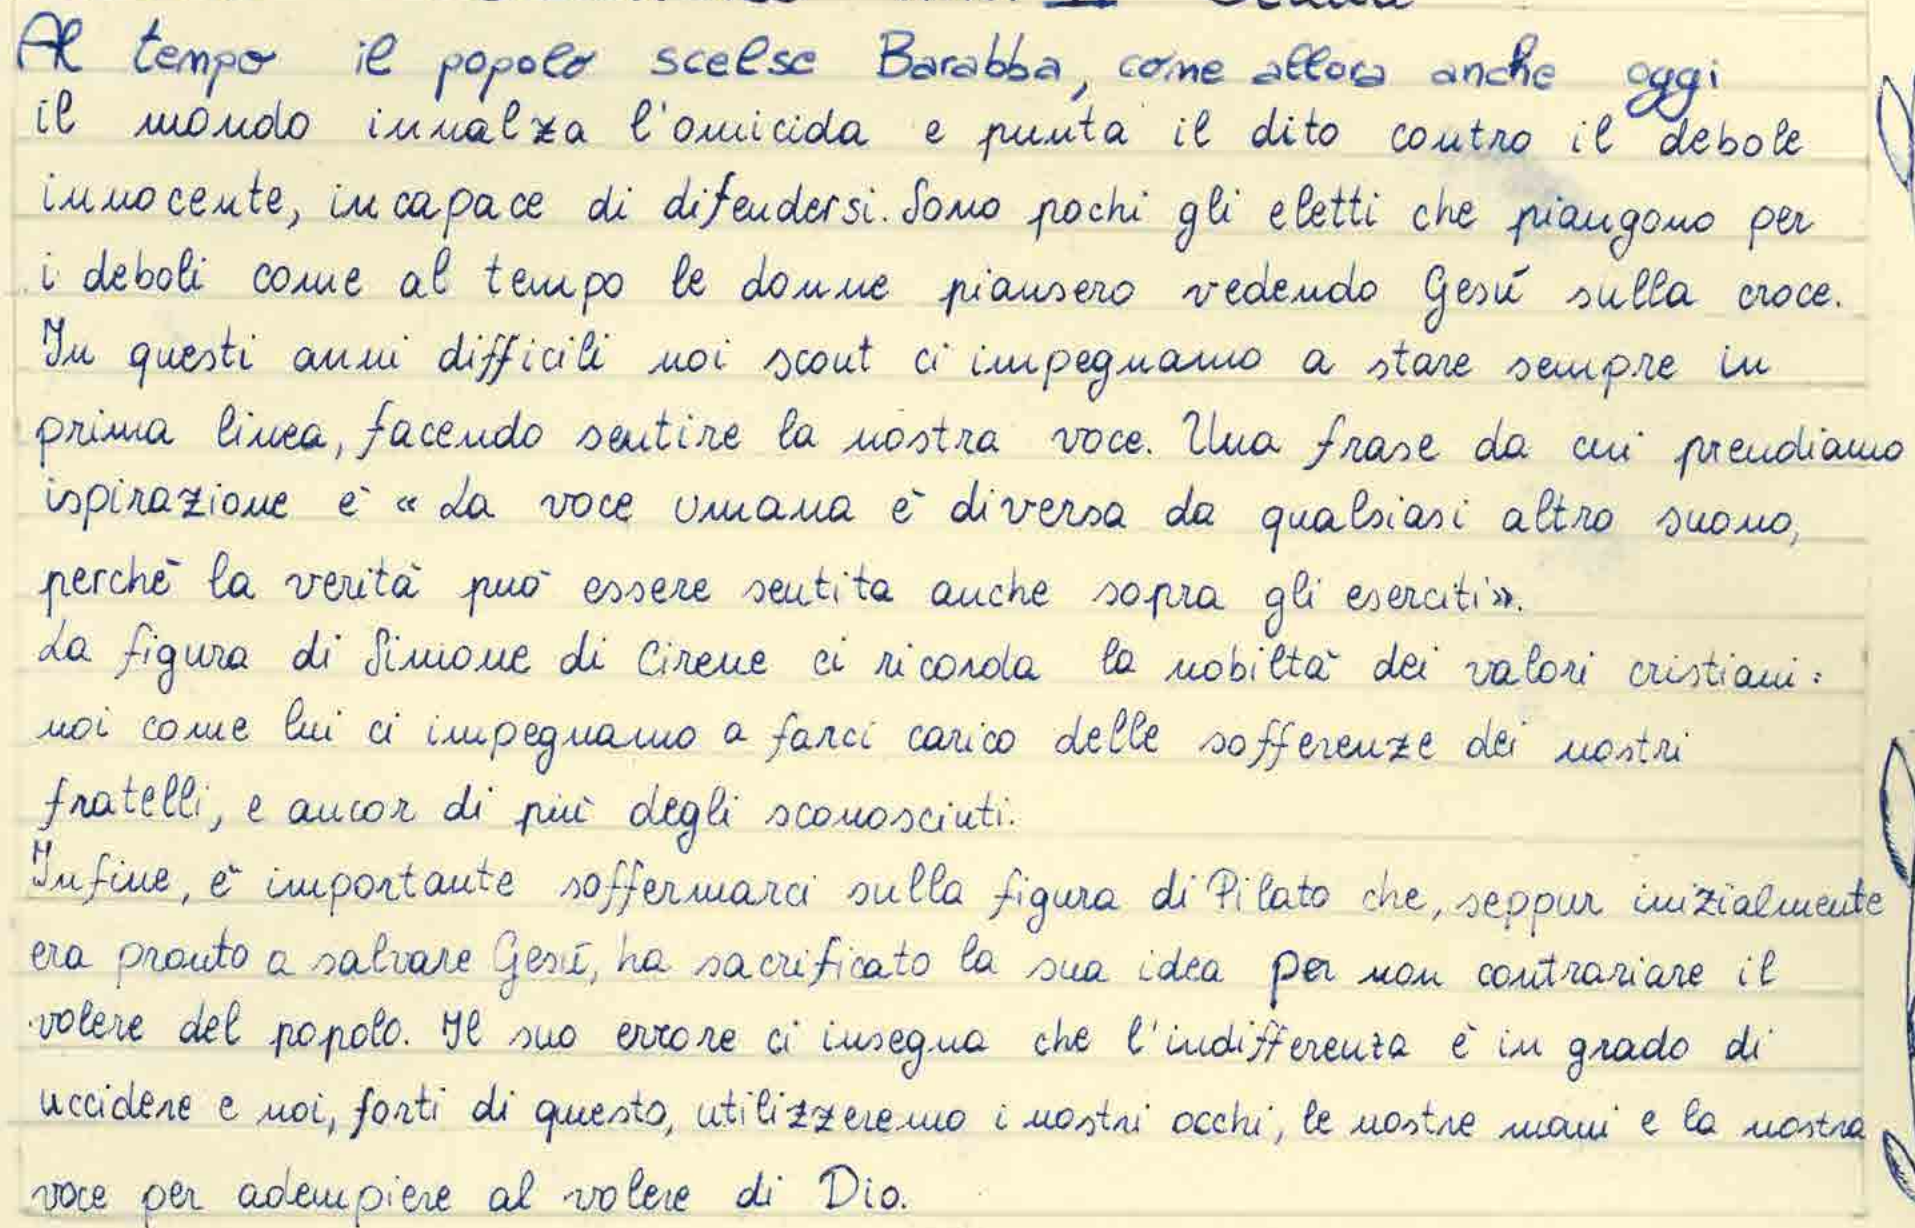 Al tempo il popolo scelse Barabba, come allora anche oggi
il mondo innalza l'omicida e punta il dito contro il debole
innocente, incapace di difendersi. Sono pochi gli eletti che piangono per
i deboli come al tempo le donne piansero vedendo Gesù sulla croce.
In questi anni difficili noi scout ci impegnamo a stare sempre in
prima linea, facendo sentire la nostra voce. Una frase da cui prendiamo
ispirazione è « La voce umana è diversa da qualsiasi altro suono,
perchè la verità può essere sentita anche sopra gli eserciti».
La figura di Simone di Cirene ci ricorda la nobiltà dei valori cristiani:
noi come lui ci impegnamo a farci carico delle sofferenze dei nostri
fratelli, e ancor di più degli sconosciuti.
Infine, è importante soffermarci sulla figura di Pilato che, seppur inizialmente
era pronto a salvare Gesù, ha sacrificato la sua idea per non contrariare il
volere del popolo. Il suo errore ci insegna che l'indifferenza è in grado di
uccidere e noi, forti di questo, utilizzeremo i nostri occhi, le nostre mani e la nostra
voce per adempiere al volere di Dio.